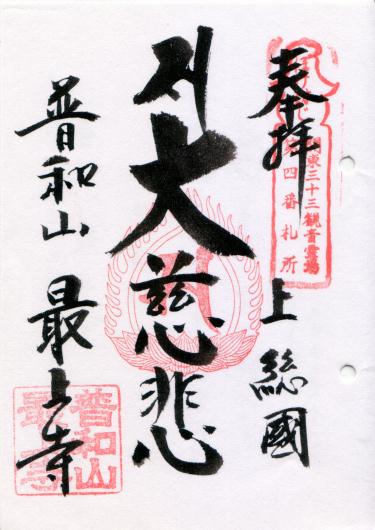 奉拝
上総國
大慈悲
普和山 最上寺
関東三十三観音霊場
第四番札所
普和山
最上寺